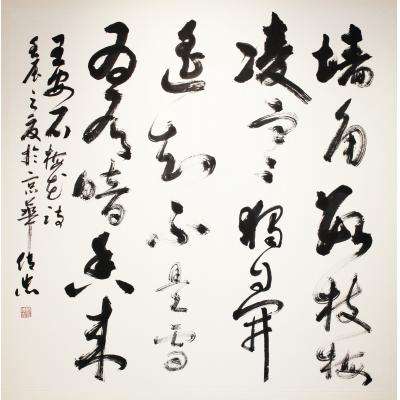 墙角数枝梅
凌寒独自开
遥知不是雪
为有暗香来
王安石梅花诗
壬辰之夏於京華